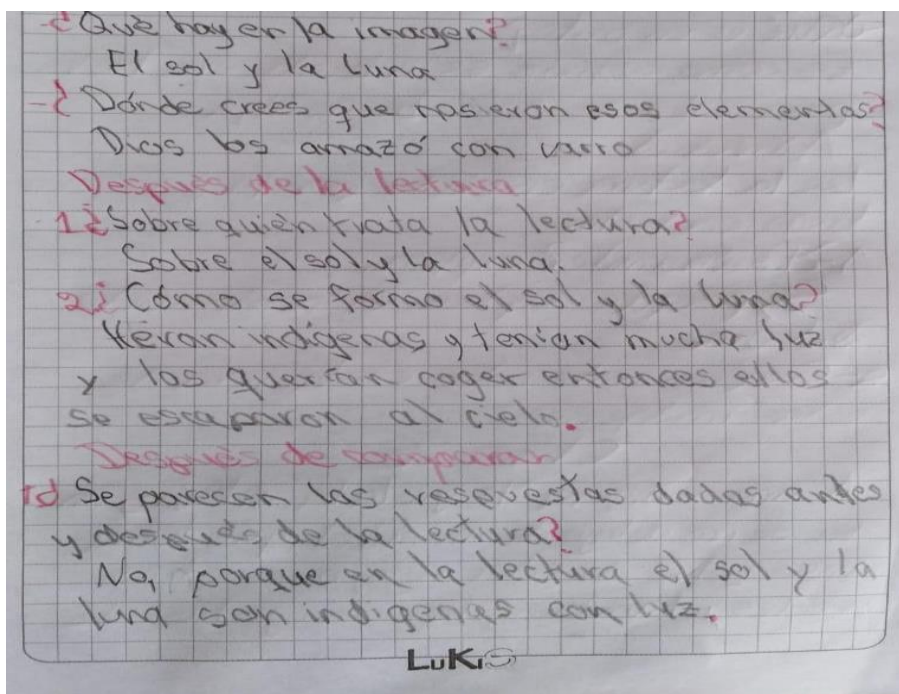 -¿Qué hay en la imagen?
El sol y la luna
-¿Dónde crees que nasieron esos elementos?
Dios los amazó con varro
Después de la lectura
1¿Sobre quién trata la lectura?
Sobre el sol y la luna.
2¿Cómo se formo el sol y la luna?
Heran indígenas y tenían mucha luz
y los querían coger entonces ellos
se escaparon al cielo.
Después de comparar
1¿Se parecen las respuestas dadas antes
y después de la lectura?
No, porque en la lectura el sol y la
luna son indígenas con luz.
LuKis